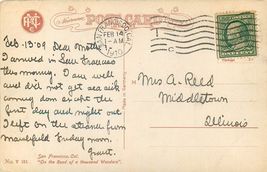 POST CARD
FEB 14
1-AM
Feb-13'09 Dear Mother
I arrived in San Francisco
this morning. I am well
and did not get sea sick
coming down except the
first day and night out
I left on the steamer from
Marshfield Friday noon.
Grant.
Mrs A. Reed
Middletown
Illinois
No. V 184
San Francisco, Cal.
"On the Road of a thousand Wonders"